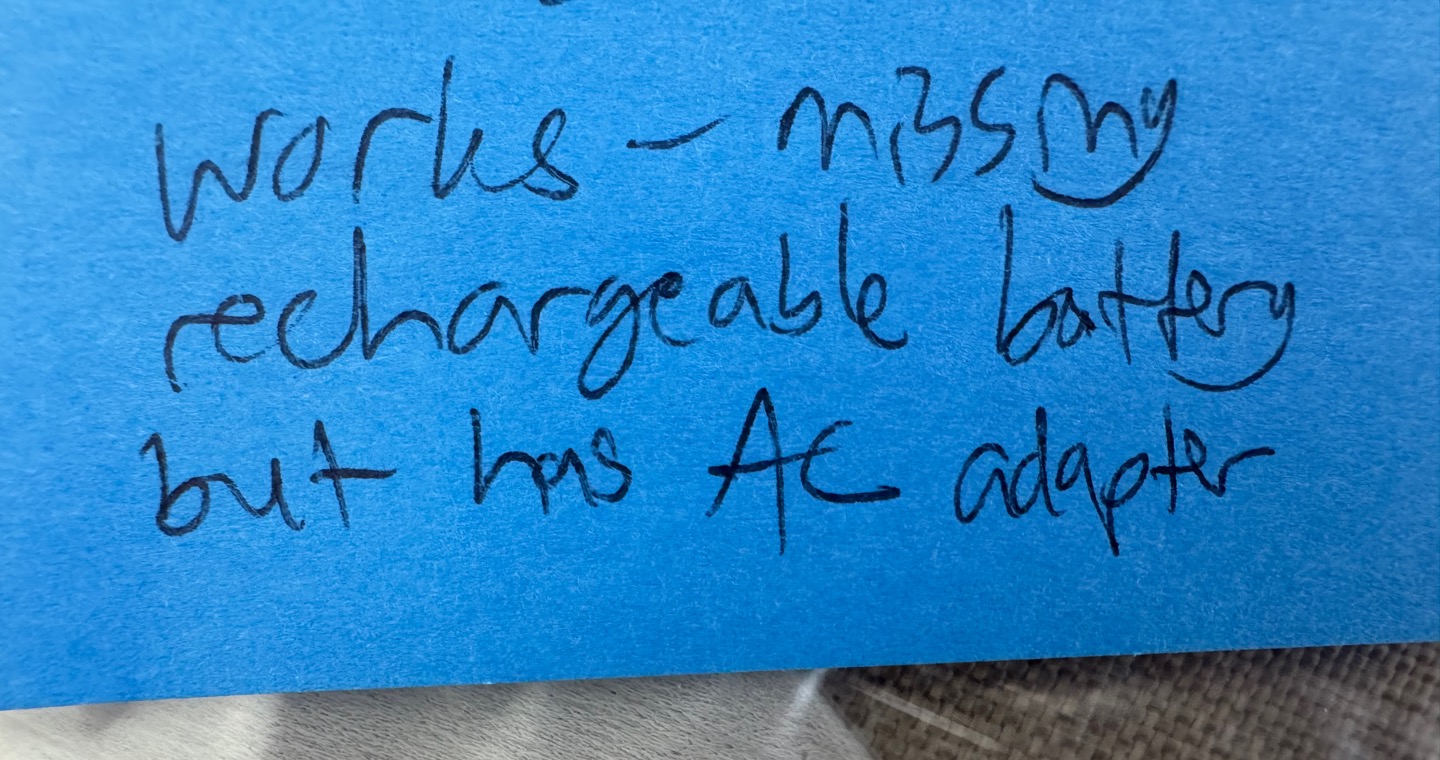 works - missing
rechargeable battery
but has AC adapter